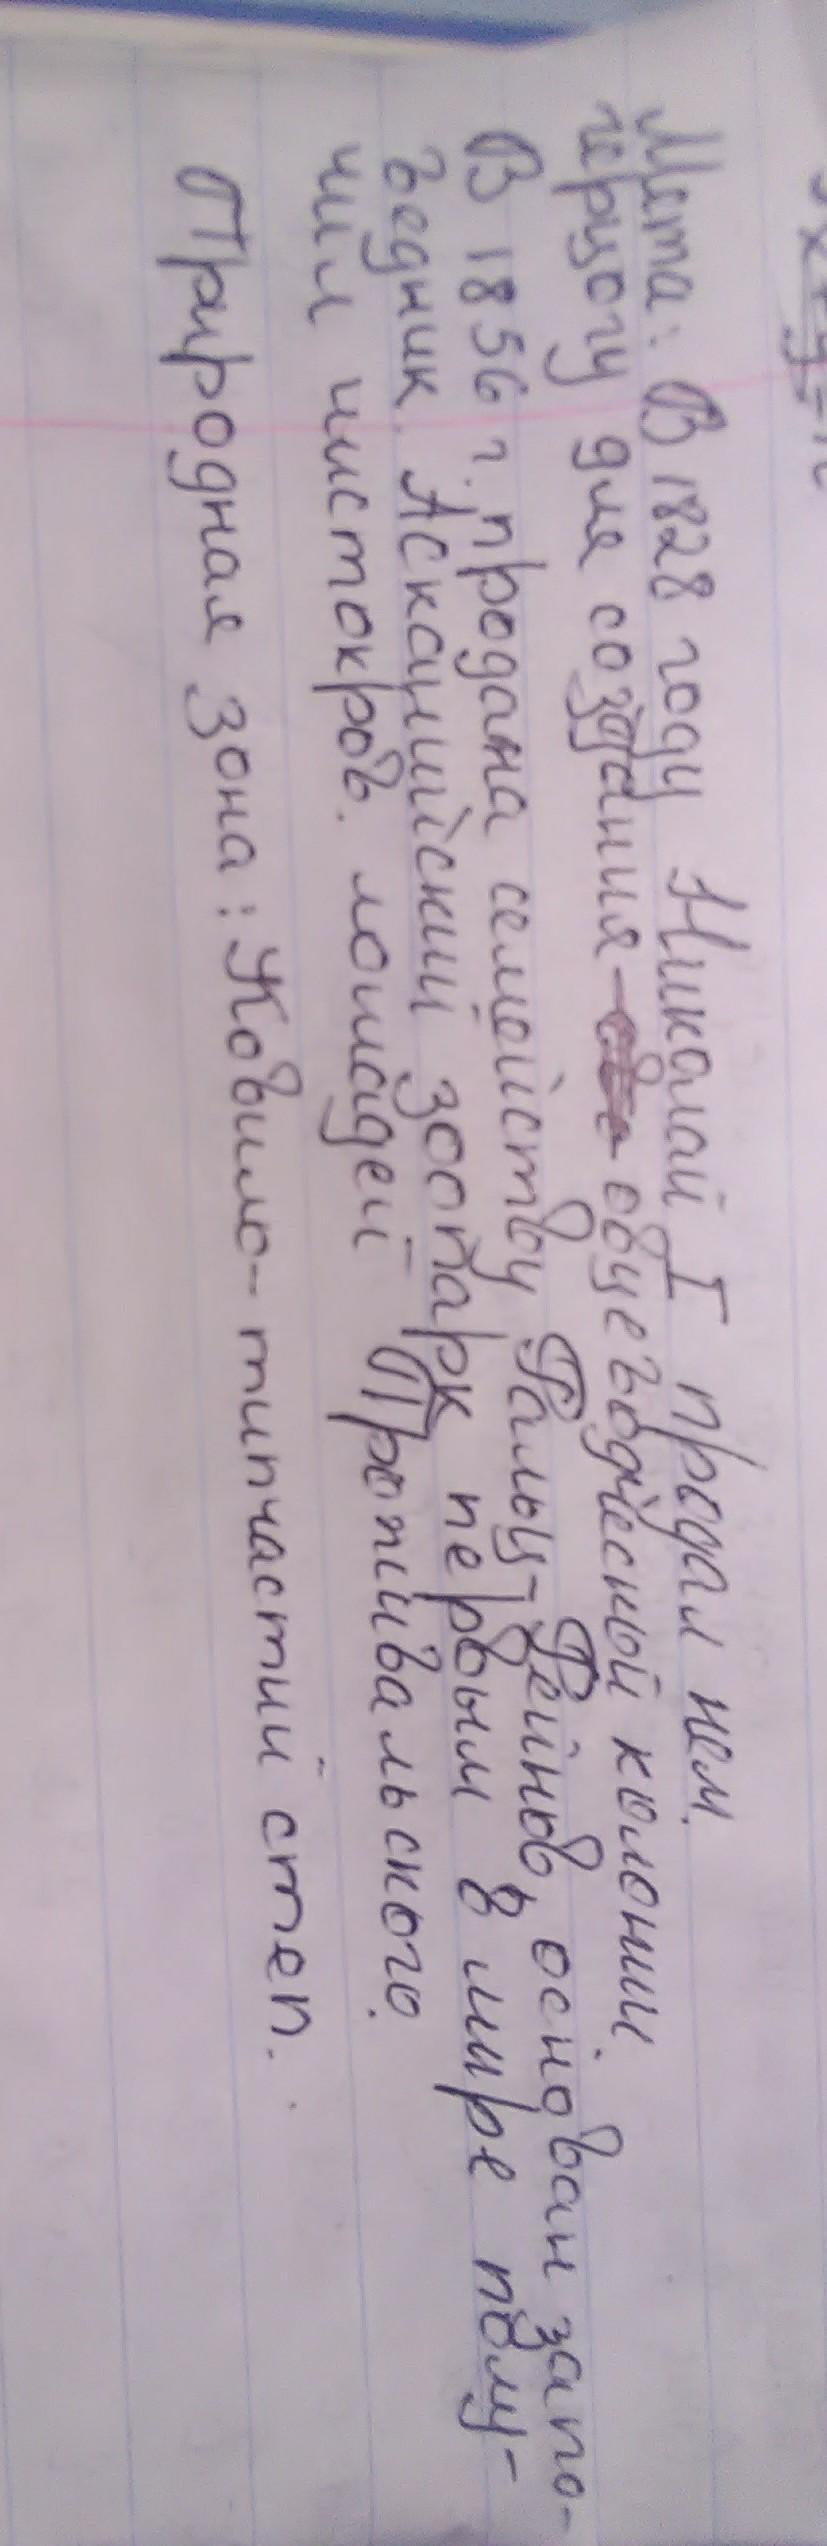 Мета: В 1828 году Николай I продал нем.
герцогу для создания овцеводческой колонии.
В 1856 г. продана семейству Фальц-Фейнов, основан запо-
ведник. Асканийский зоопарк первым в мире полу-
чил чистокров. лошадей Прживальского.
Природная зона: Ковило-типчастий степ.